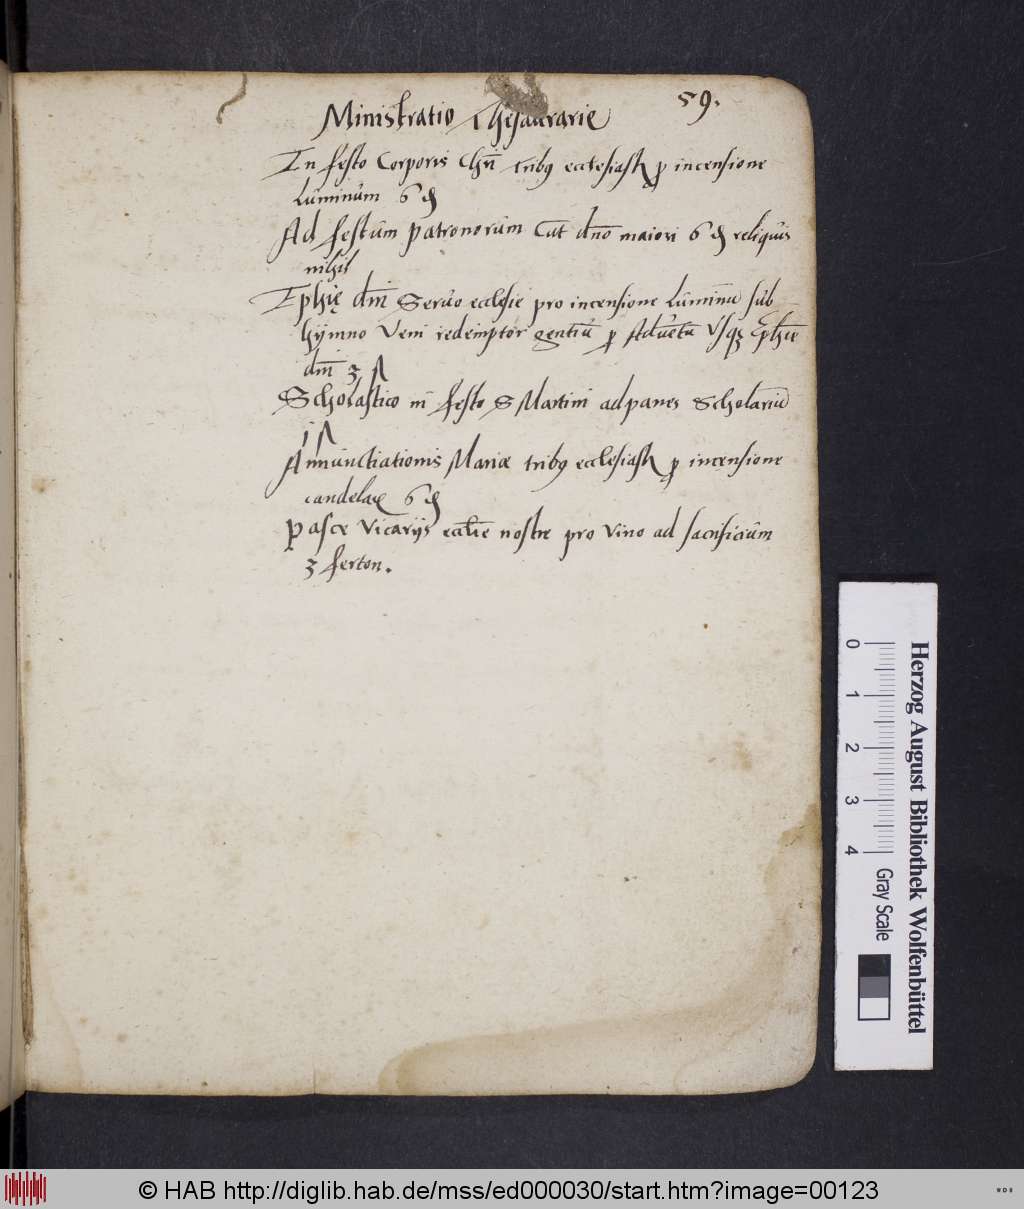 59.
Ministratio Thesaurarie
In festo Corporis Chri tribꝯ ecclesiastꝭ ꝑ incensione
luminum 6 ₰
Ad festum patronorum Cut dno maiori 6 ₰ reliquis
nihil
Iphię dm̄ Servo ecclesie pro incensione luminū sub
hymno Veni redemptor gentiū ꝑ Advetū Usqꝫ Epħie
dm̄ 3 ß
Scholastico in festo S Martini ad panes Scholariū
j ß
Annunctiationis Mariæ tribꝯ ecclesiastꝭ ꝑ incensione
candelaꝝ 6 ₰
Pasce Vicarijs eccłie nostre pro Vino ad sacrificium
3 ferton.
Herzog August Bibliothek Wolfenbüttel
0 1 2 3 4 Gray Scale
© HAB http://diglib.hab.de/mss/ed000030/start.htm?image=00123